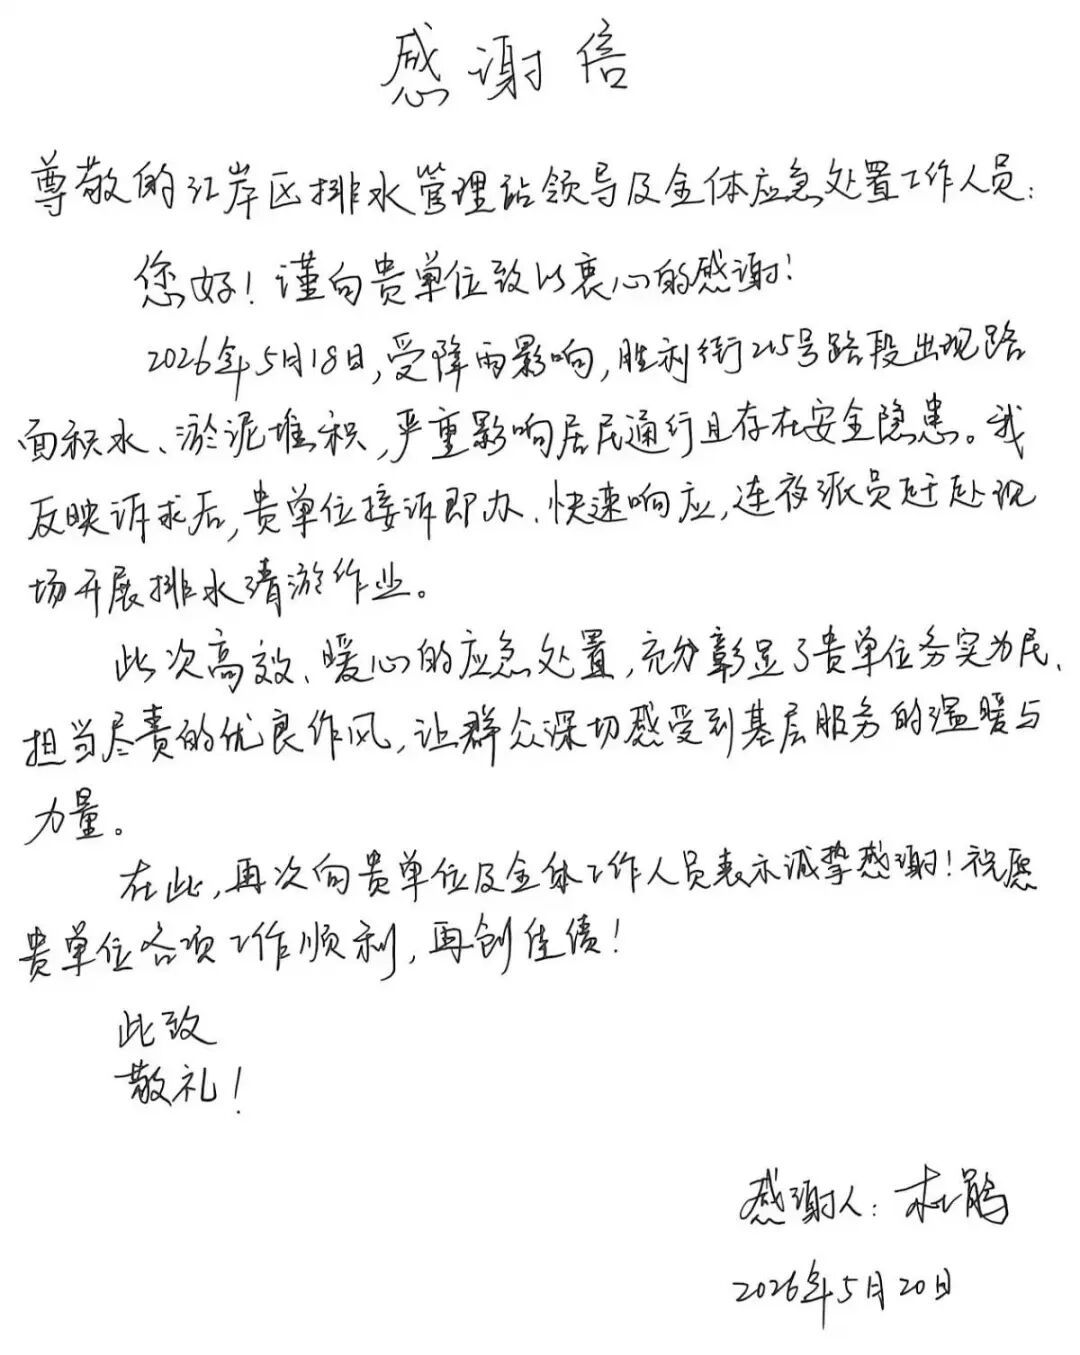 感谢信
尊敬的江岸区排水管理站领导及全体应急处置工作人员：
您好！谨向贵单位致以衷心的感谢！
2026年5月18日，受降雨影响，胜利街215号路段出现路
面积水、淤泥堆积，严重影响居民通行且存在安全隐患。我
反映诉求后，贵单位接诉即办、快速响应，连夜派员赶赴现
场开展排水清淤作业。
此次高效、暖心的应急处置，充分彰显了贵单位务实为民、
担当尽责的优良作风，让群众深切感受到基层服务的温暖与
力量。
在此，再次向贵单位及全体工作人员表示诚挚感谢！祝愿
贵单位各项工作顺利，再创佳绩！
此致
敬礼！
感谢人：杜鹃
2026年5月20日